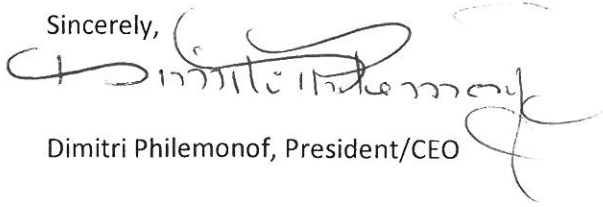 Sincerely,
Dimitri Philemonof
Dimitri Philemonof, President/CEO